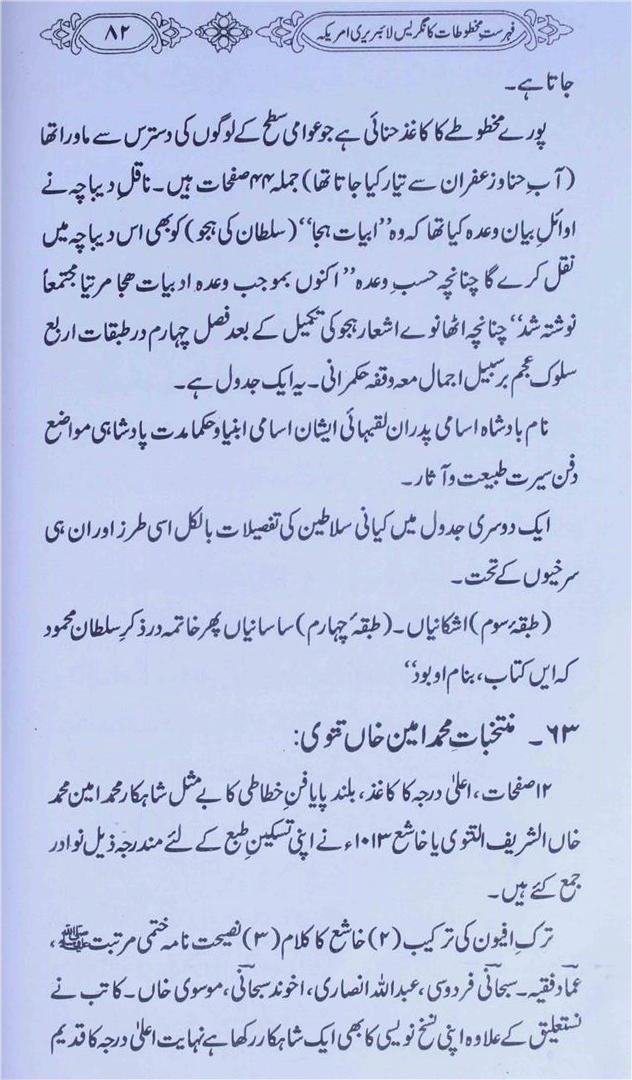 فہرستِ مخطوطات کانگریس لائبریری امریکہ
۸۲
جاتا ہے۔
پورے مخطوطے کا کاغذ حنائی ہے جو عوامی سطح کے لوگوں کی دسترس سے ماورا تھا
(آبِ حنا و زعفران سے تیار کیا جاتا تھا) جملہ ۴۴ صفحات ہیں۔ ناقلِ دیباچہ نے
اوائلِ بیان وعدہ کیا تھا کہ وہ ’’ابیات ہجا‘‘ (سلطان کی ہجو) کو بھی اس دیباچہ میں
نقل کرے گا چنانچہ حسبِ وعدہ ’’اکنوں بموجب وعدہ ادبیات ھجا مرتباً مجتمعاً
نوشتہ شد‘‘ چنانچہ اٹھانوے اشعار ہجو کی تکمیل کے بعد فصل چہارم در طبقات اربع
سلوک عجم بر سبیل اجمال معہ وقفہ حکمرانی۔ یہ ایک جدول ہے۔
نام بادشاہ اسامی پدران لقبہائی ایشان اسامی ابنیا و حکما مدت پادشاہی مواضع
دفن سیرت طبیعت و آثار۔
ایک دوسری جدول میں کیانی سلاطین کی تفصیلات بالکل اسی طرز اور ان ہی
سرخیوں کے تحت۔
(طبقۂ سوم) اشکانیاں۔ (طبقۂ چہارم) ساسانیاں پھر خاتمہ در ذکرِ سلطان محمود
کہ ایں کتاب، بنام او بود‘‘
۶۳۔ منتخباتِ محمد امین خاں تقوی:
۱۲ صفحات، اعلیٰ درجہ کا کاغذ، بلند پایا فنِ خطاطی کا بے مثل شاہکار محمد امین محمد
خاں الشریف التقوی یا خاشع ۱۰۱۳ء نے اپنی تسکینِ طبع کے لئے مندرجہ ذیل نوادر
جمع کئے ہیں۔
ترکِ افیون کی ترکیب (۲) خاشع کا کلام (۳) نصیحت نامہ ختمی مرتبت ﷺ،
عماد فقیہ۔ سبحانی فردوسی، عبداللہ انصاری، اخوند سبحانی، موسوی خاں۔ کاتب نے
نستعلیق کے علاوہ اپنی نسخ نویسی کا بھی ایک شاہکار رکھا ہے نہایت اعلیٰ درجہ کا قدیم